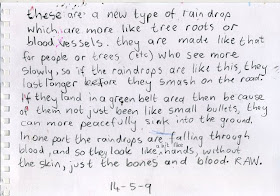 these are a new type of raindrop
which are more like tree roots or
blood vessels. they are made like that
for people or trees (etc) who see more
slowly, so if the raindrops are like this, they
last longer before they smash on the road.
If they land in a green belt area then because
of them not just been like small bullets, they
can more peacefully sink into the ground.
In one part the raindrops are falling through
blood, and so they look a bit like hands, without
the skin, just the bones and blood. RAW.
14-5-9